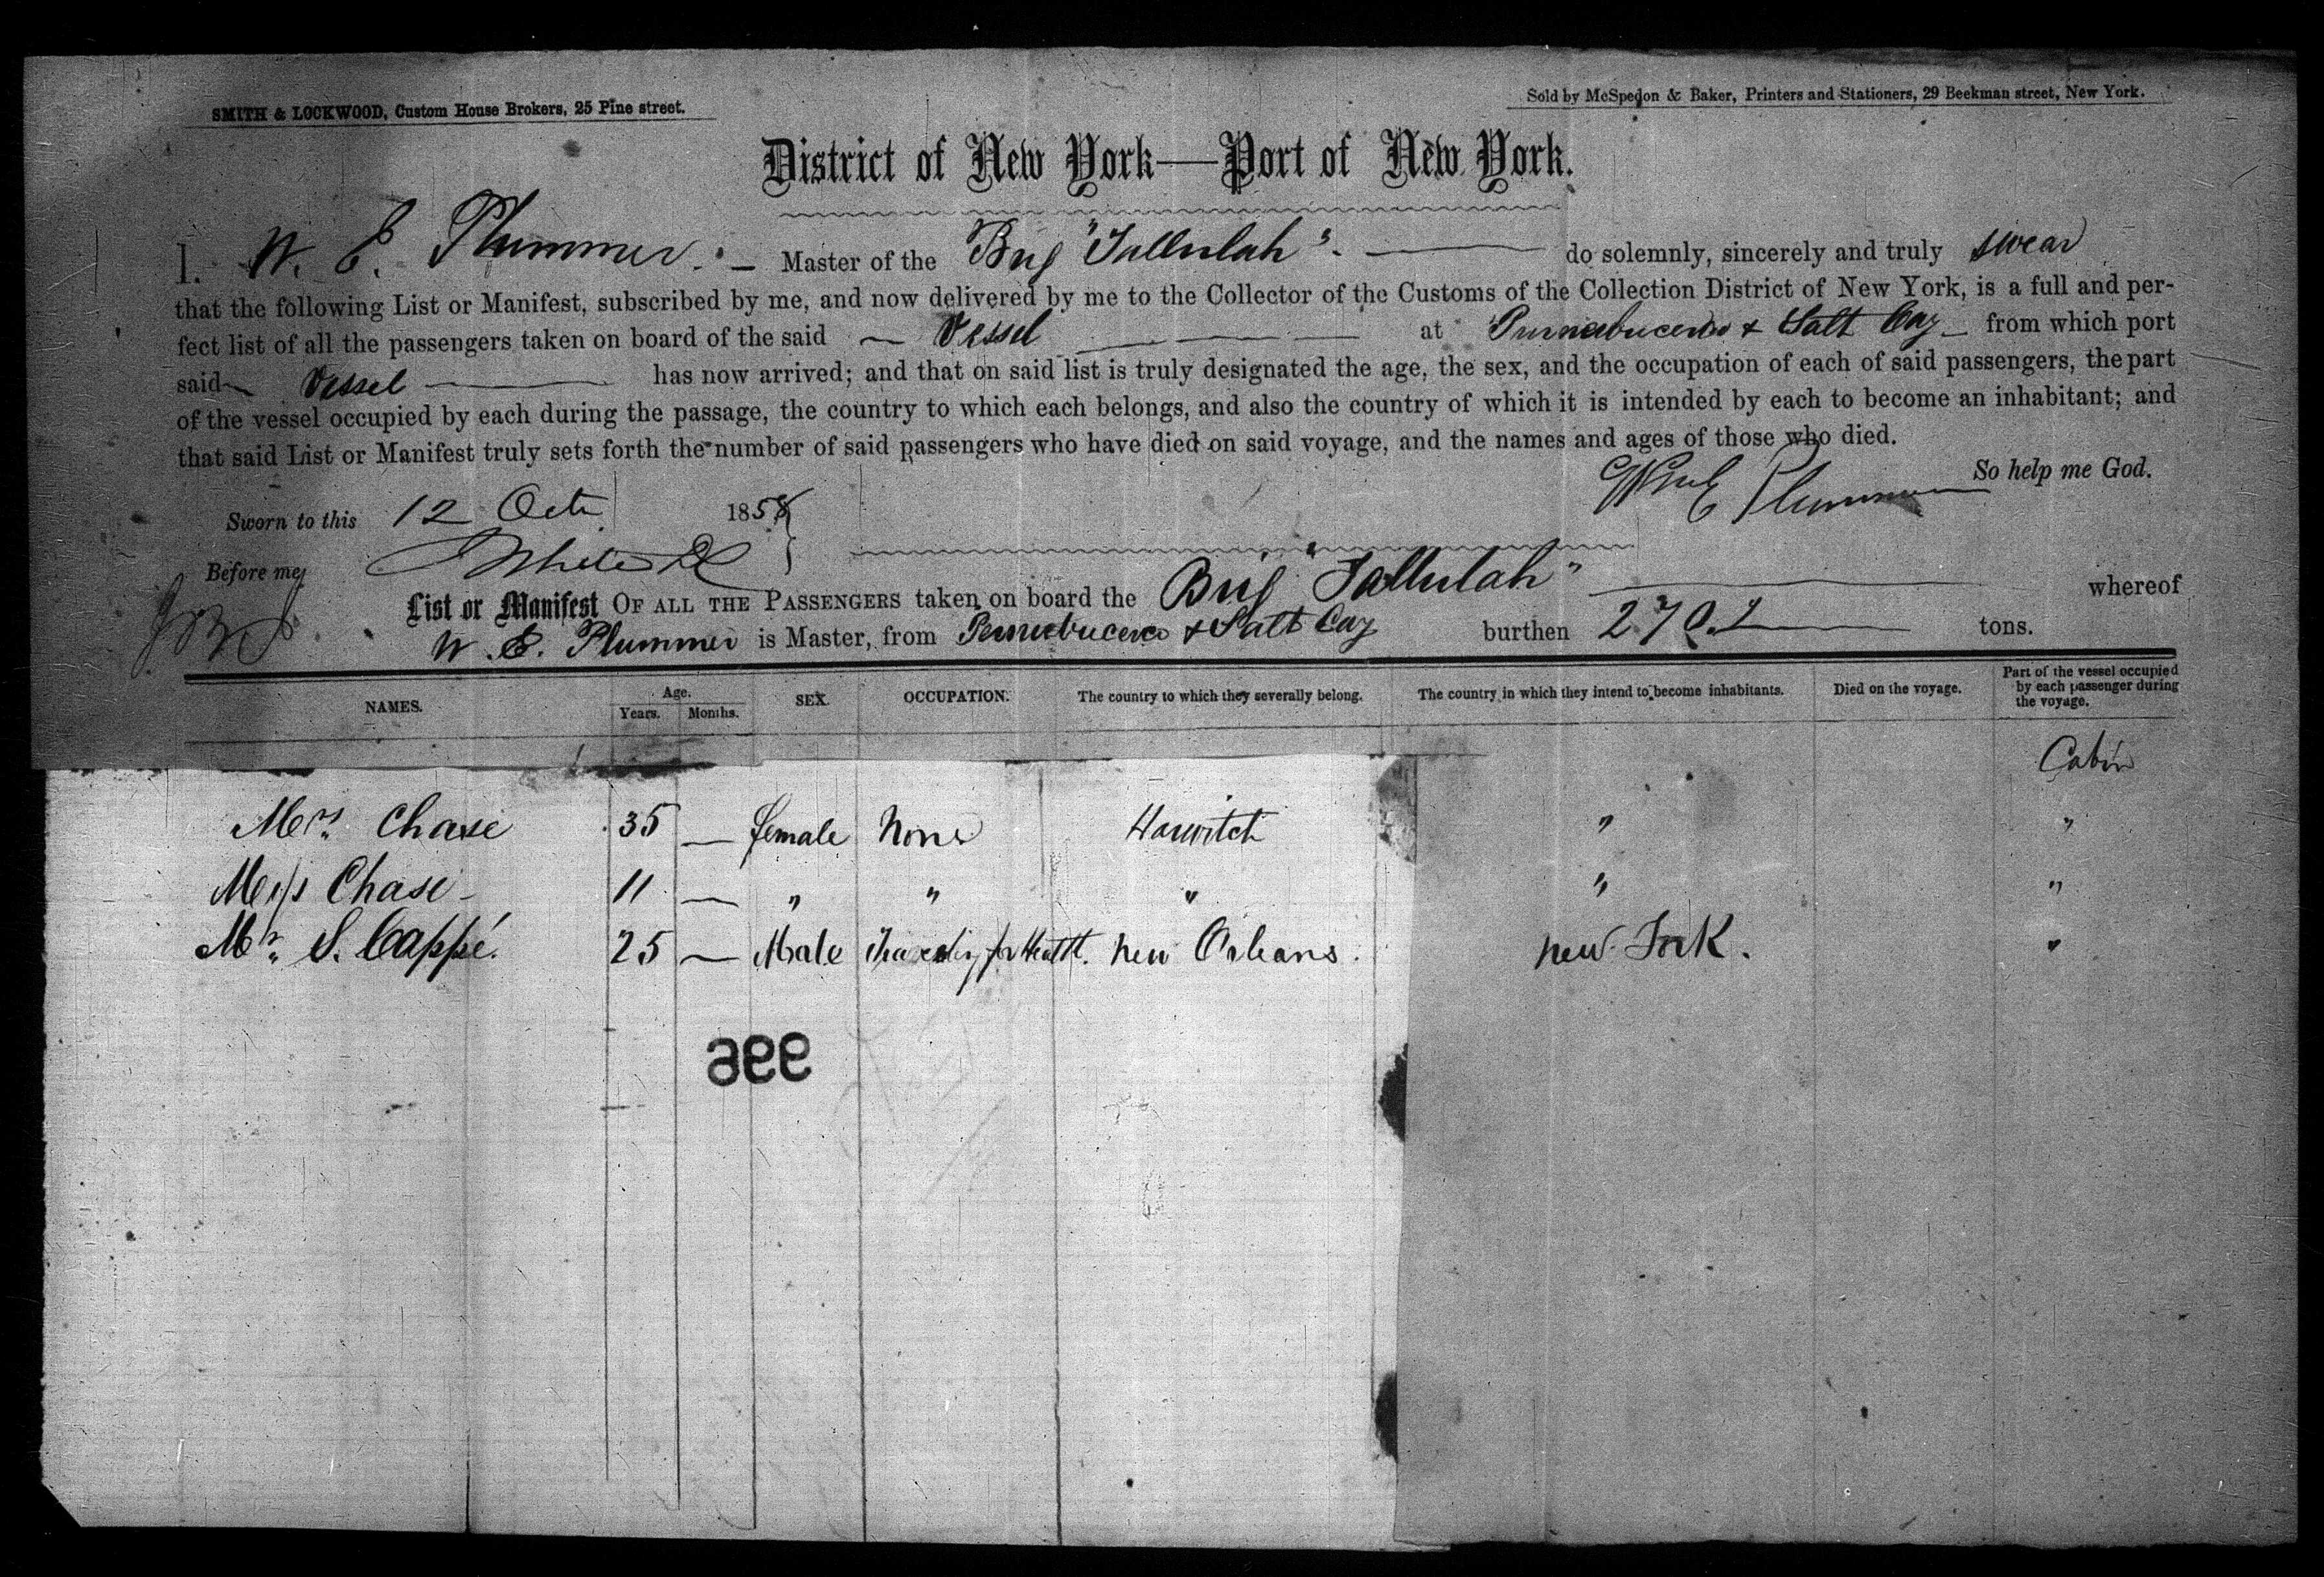 SMITH & LOCKWOOD, Custom House Brokers, 25 Pine street.
Sold by McSpedon & Baker, Printers and Stationers, 29 Beekman street, New York.
District of New York—Port of New York.
I. W. E. Plummer. — Master of the Brig "Tallulah". do solemnly, sincerely and truly swear
that the following List or Manifest, subscribed by me, and now delivered by me to the Collector of the Customs of the Collection District of New York, is a full and per-
fect list of all the passengers taken on board of the said Vessel at Purnabucendo & Salt Cay from which port
said Vessel has now arrived; and that on said list is truly designated the age, the sex, and the occupation of each of said passengers, the part
of the vessel occupied by each during the passage, the country to which each belongs, and also the country of which it is intended by each to become an inhabitant; and
that said List or Manifest truly sets forth the number of said passengers who have died on said voyage, and the names and ages of those who died.
So help me God.
Wm E Plummer
Sworn to this 12 Octr 1858
Before me,
List or Manifest OF ALL THE PASSENGERS taken on board the Brig "Tallulah" whereof
W. E. Plummer is Master, from Pernebucenco & Salt Cay burthen 270. tons.
NAMES. Age. Years. Months. SEX. OCCUPATION. The country to which they severally belong. The country in which they intend to become inhabitants. Died on the voyage. Part of the vessel occupied by each passenger during the voyage.
Cabin
Mrs. Chase 35 — female None Harwitch " "
Miss Chase 11 — " " " " "
Mr. S. Cappé. 25 — Male Traveling for Health. New Orleans. New York. "
996